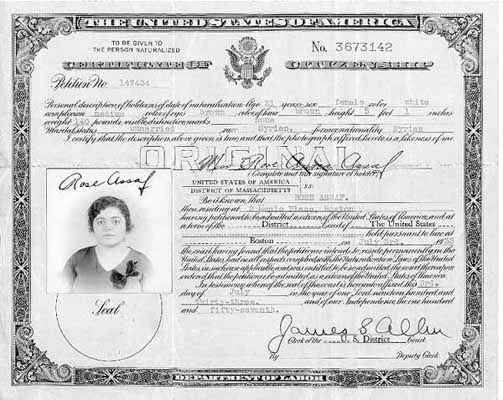 THE UNITED STATES OF AMERICA
TO BE GIVEN TO
THE PERSON NATURALIZED
No. 3673142
CERTIFICATE OF CITIZENSHIP
Petition No. 147434
Personal description of holder as of date of naturalization: Age 21 years; sex female color white
complexion medium color of eyes brown color of hair brown height 5 feet inches
weight 140 pounds; visible distinctive marks none
Marital status unmarried race Syrian former nationality Syrian
I certify that the description above given is true, and that the photograph affixed hereto is a likeness of me
ORIGINAL
Miss Rose Assaf
Complete and true signature of holder
UNITED STATES OF AMERICA
DISTRICT OF MASSACHUSETTS SS:
Be it known, that ROSE ASSAF.
then residing at Place, Boston
having petitioned to be admitted a citizen of the United States of America, and at
a term of the District Court of The United States
held pursuant to law at
Boston on July 3rd, 1933
the court having found that the petitioner intends to reside permanently in the
United States, had in all respects complied with the Naturalization Laws of the United
States in such case applicable, and was entitled to be so admitted, the court thereupon
ordered that the petitioner be admitted as a citizen of the United States of America.
In testimony whereof the seal of the court is hereunto affixed this 3rd.
day of July in the year of our Lord nineteen hundred and
thirty-three. and of our Independence the one hundred
and fifty-seventh.
Rose Assaf
Seal
James S. Allen
Clerk of the U. S. District Court
By Deputy Clerk
DEPARTMENT OF LABOR